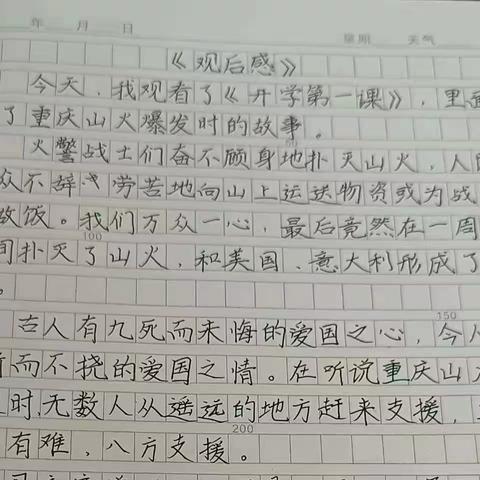 年 月 日 星期 天气
《观后感》
今天，我观看了《开学第一课》，里面
了重庆山火爆发时的故事。
火警战士们奋不顾身地扑灭山火，人
众不辞劳苦地向山上运送物资或为战
做饭。我们万众一心，最后竟然在一周
100
间扑灭了山火，和美国、意大利形成了
。
150
古人有九死而未悔的爱国之心，今人
而不挠的爱国之情。在听说重庆山
时，无数人从遥远的地方赶来支援，
200
有难，八方支援。